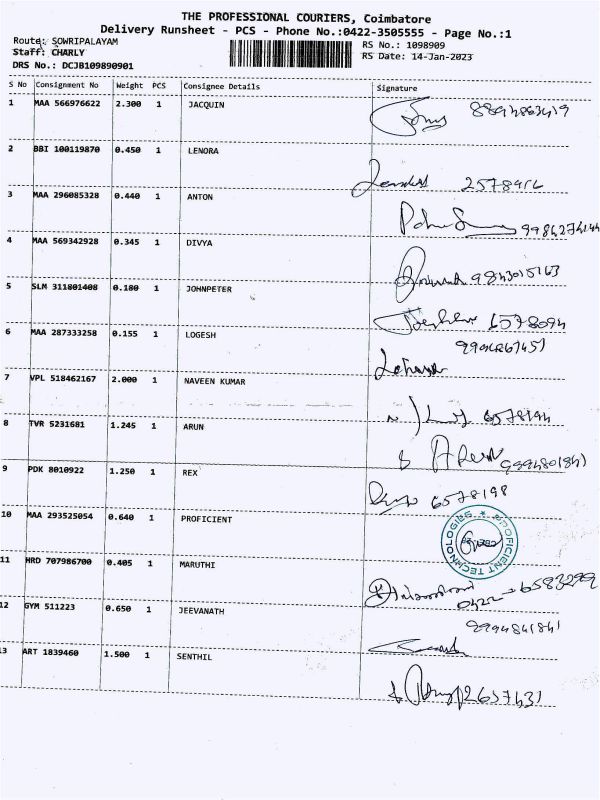 THE PROFESSIONAL COURIERS, Coimbatore
Delivery Runsheet - PCS - Phone No.:0422-3505555 - Page No.:1
Route: SOWRIPALAYAM
RS No.: 1098909
Staff: CHARLY
RS Date: 14-Jan-2023
DRS No.: DCJB109890901
S No Consignment No Weight PCS Consignee Details Signature
1 MAA 566976622 2.300 1 JACQUIN
2 BBI 100119870 0.450 1 LENORA
3 MAA 296085328 0.440 1 ANTON
4 MAA 569342928 0.345 1 DIVYA
9843015163
5 SLM 311801408 0.180 1 JOHNPETER
6578094
6 MAA 287333258 0.155 1 LOGESH
7 VPL 518462167 2.000 1 NAVEEN KUMAR
6578194
8 TVR 5231681 1.245 1 ARUN
9994801841
9 PDK 8010922 1.250 1 REX
6578198
10 MAA 293525054 0.640 1 PROFICIENT
PROFICIENT TECHNOLOGIES
11 HRD 707986700 0.405 1 MARUTHI
0422-6583299
12 GYM 511223 0.650 1 JEEVANATH
9994841841
13 ART 1839460 1.500 1 SENTHIL